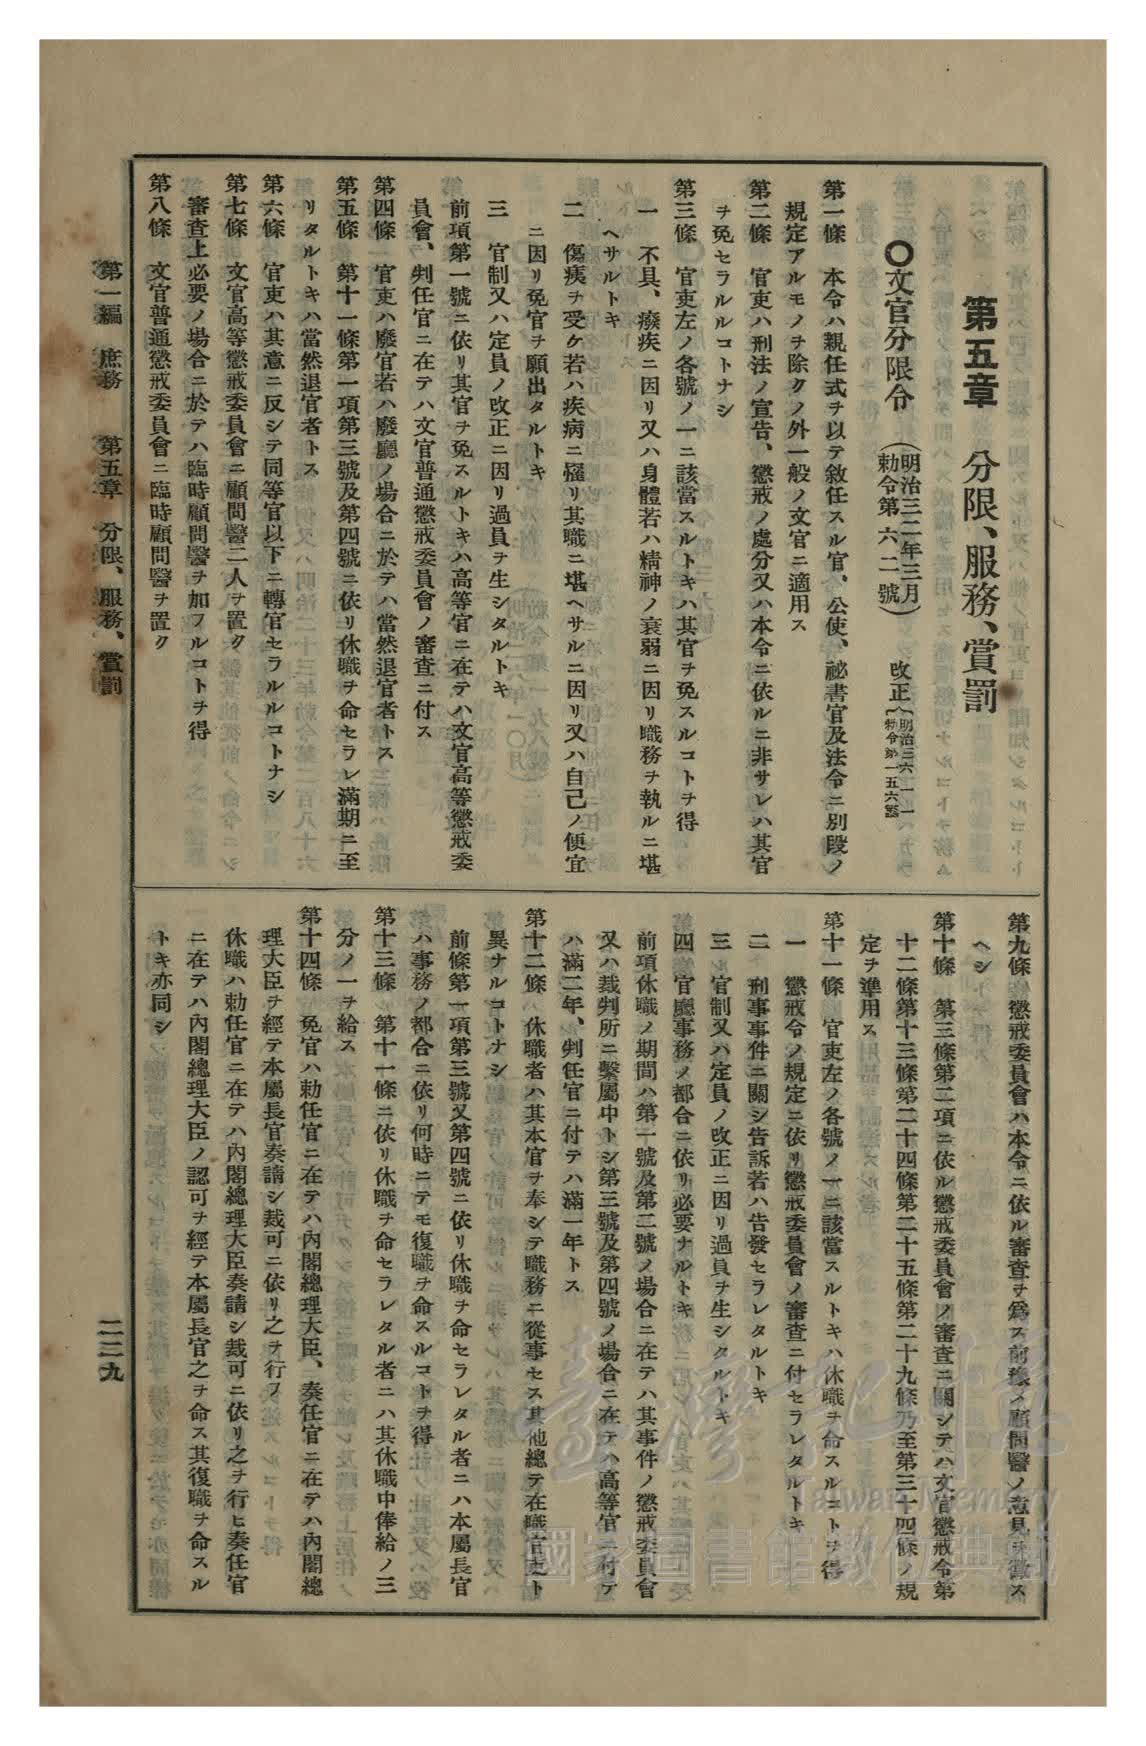 第五章　分限、服務、賞罰
〇文官分限令（明治三二年三月勅令第六二號）　改正（明治三六—一一勅令第一五六號）
第一條　本令ハ親任式ヲ以テ敘任スル官、公使、祕書官及法令ニ別段ノ
規定アルモノヲ除クノ外一般ノ文官ニ適用ス
第二條　官吏ハ刑法ノ宣告、懲戒ノ處分又ハ本令ニ依ルニ非サレハ其官
ヲ免セラルルコトナシ
第三條　官吏左ノ各號ノ一ニ該當スルトキハ其官ヲ免スルコトヲ得
一　不具、癈疾ニ因リ又ハ身體若ハ精神ノ衰弱ニ因リ職務ヲ執ルニ堪
ヘサルトキ
二　傷痍ヲ受ケ若ハ疾病ニ罹リ其職ニ堪ヘサルニ因リ又ハ自己ノ便宜
ニ因リ免官ヲ願出タルトキ
三　官制又ハ定員ノ改正ニ因リ過員ヲ生シタルトキ
前項第一號ニ依リ其官ヲ免スルトキハ高等官ニ在テハ文官高等懲戒委
員會、判任官ニ在テハ文官普通懲戒委員會ノ審查ニ付ス
第四條　官吏ハ廢官若ハ廢廳ノ場合ニ於テハ當然退官者トス
第五條　第十一條第一項第三號及第四號ニ依リ休職ヲ命セラレ滿期ニ至
リタルトキハ當然退官者トス
第六條　官吏ハ其意ニ反シテ同等官以下ニ轉官セラルルコトナシ
第七條　文官高等懲戒委員會ニ顧問醫二人ヲ置ク
審查上必要ノ場合ニ於テハ臨時顧問醫ヲ加フルコトヲ得
第八條　文官普通懲戒委員會ニ臨時顧問醫ヲ置ク
第九條　懲戒委員會ハ本令ニ依ル審查ヲ爲ス前豫メ顧問醫ノ意見ヲ徵ス
ヘシ
第十條　第三條第二項ニ依ル懲戒委員會ノ審查ニ關シテハ文官懲戒令第
十二條第十三條第二十四條第二十五條第二十九條乃至第三十四條ノ規
定ヲ準用ス
第十一條　官吏左ノ各號ノ一ニ該當スルトキハ休職ヲ命スルコトヲ得
一　懲戒令ノ規定ニ依リ懲戒委員會ノ審查ニ付セラレタルトキ
二　刑事事件ニ關シ告訴若ハ告發セラレタルトキ
三　官制又ハ定員ノ改正ニ因リ過員ヲ生シタルトキ
四　官廳事務ノ都合ニ依リ必要ナルトキ
前項休職ノ期間ハ第一號及第二號ノ場合ニ在テハ其事件ノ懲戒委員會
又ハ裁判所ニ繫屬中トシ第三號及第四號ノ場合ニ在テハ高等官ニ付テ
ハ滿二年、判任官ニ付テハ滿一年トス
第十二條　休職者ハ其本官ヲ奉シテ職務ニ從事セス其他總テ在職官吏ト
異ナルコトナシ
前條第一項第三號又第四號ニ依リ休職ヲ命セラレタル者ニハ本屬長官
ハ事務ノ都合ニ依リ何時ニテモ復職ヲ命スルコトヲ得
第十三條　第十一條ニ依リ休職ヲ命セラレタル者ニハ其休職中俸給ノ三
分ノ一ヲ給ス
第十四條　免官ハ勅任官ニ在テハ內閣總理大臣、奏任官ニ在テハ內閣總
理大臣ヲ經テ本屬長官奏請シ裁可ニ依リ之ヲ行フ
休職ハ勅任官ニ在テハ內閣總理大臣奏請シ裁可ニ依リ之ヲ行ヒ奏任官
ニ在テハ內閣總理大臣ノ認可ヲ經テ本屬長官之ヲ命ス其復職ヲ命スル
トキ亦同シ
第一編　庶務　　第五章　分限、服務、賞罰
二三九
臺灣記憶
Taiwan Memory
國家圖書館數位典藏